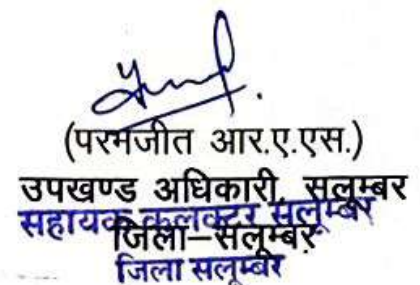 (परमजीत आर.ए.एस.)
उपखण्ड अधिकारी, सलूम्बर
सहायक कलक्टर सलूम्बर
जिला–सलूम्बर
जिला सलूम्बर